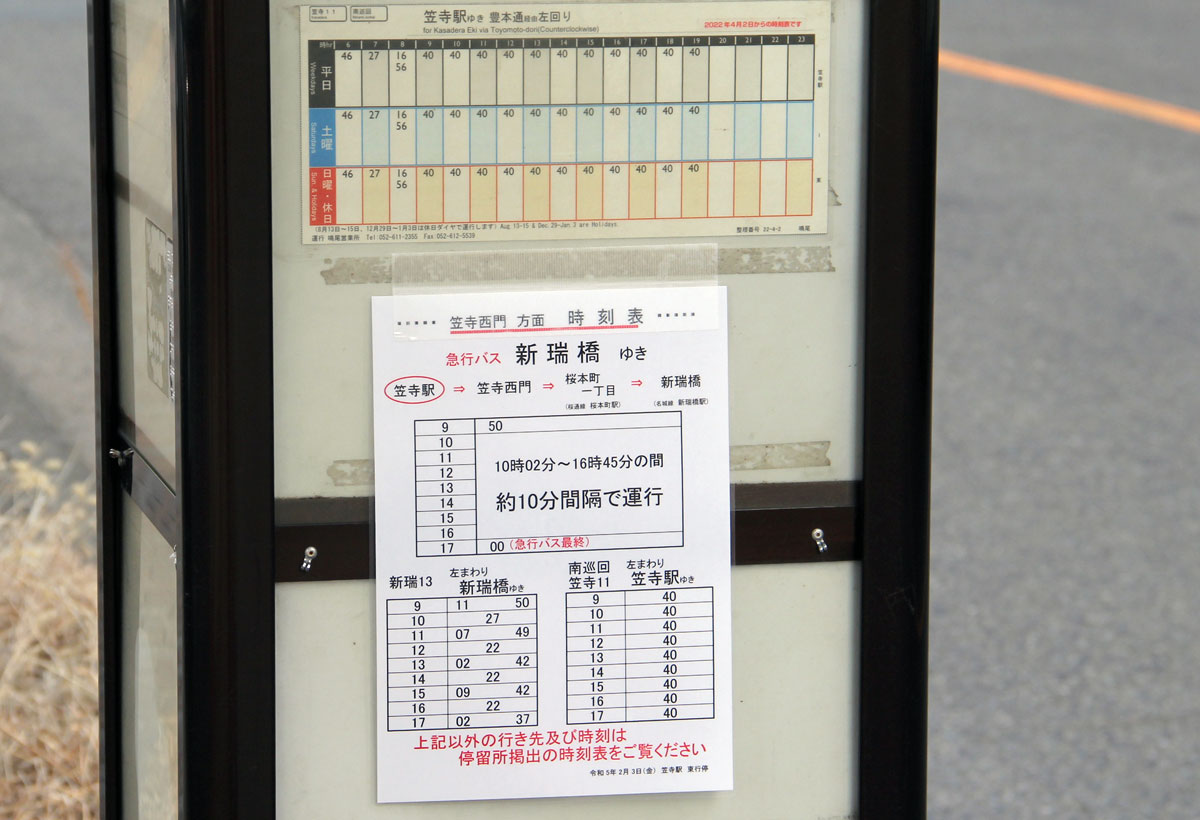 笠寺11 南巡回
笠寺駅ゆき 豊本通経由左回り
for Kasadera Eki via Toyomoto-dori(Counterclockwise)
2022年4月2日からの時刻表です
時hr 6 7 8 9 10 11 12 13 14 15 16 17 18 19 20 21 22 23
平日 Weekdays 46 27 16 40 40 40 40 40 40 40 40 40 40 40
56
土曜 Saturdays 46 27 16 40 40 40 40 40 40 40 40 40 40 40
56
日曜・休日 Sun. & Holidays 46 27 16 40 40 40 40 40 40 40 40 40 40 40
56
笠寺駅
(8月13日〜15日、12月29日〜1月3日は休日ダイヤで運行します) Aug 13-15 & Dec 29-Jan 3 are Holidays.
運行 鳴尾営業所 Tel 052-611-2355 Fax 052-612-5539
整理番号 32-4-2 鳴尾
笠寺西門 方面 時刻表
急行バス 新瑞橋 ゆき
笠寺駅 ⇒ 笠寺西門 ⇒ 桜本町一丁目 ⇒ 新瑞橋
(桜通線 桜本町駅) (名城線 新瑞橋駅)
9 50
10
11 10時02分〜16時45分の間
12
13
14 約10分間隔で運行
15
16
17 00 (急行バス最終)
新瑞13 左まわり 新瑞橋ゆき
9 11 50
10 27
11 07 49
12 22
13 02 42
14 22
15 09 42
16 22
17 02 37
南巡回 笠寺11 左まわり 笠寺駅ゆき
9 40
10 40
11 40
12 40
13 40
14 40
15 40
16 40
17 40
上記以外の行き先及び時刻は
停留所掲出の時刻表をご覧ください
令和5年2月3日(金) 笠寺駅 東行停